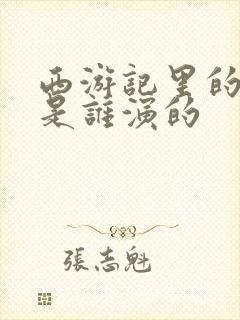 西游記里的
是誰演的
張志魁